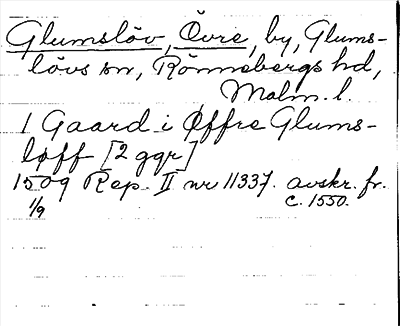 Glumslöv, Övre, by, Glums-
lövs sn, Rönnebergs hd,
Malm. l.
1 Gaard i Øffre Glums-
løff [2 ggr]
1509 Rep. II nr 11337. avskr. fr.
1/9 c. 1550.